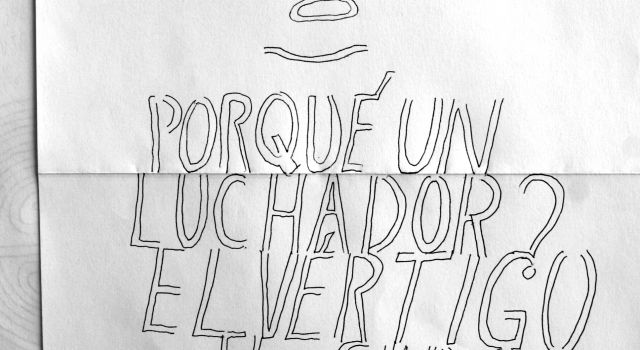 PORQUÉ UN
LUCHADOR?
EL VÉRTIGO